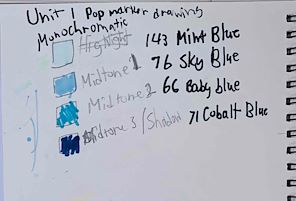 Unit 1 Pop marker drawing
Monochromatic
Highlight 143 Mint Blue
Midtone 1 76 Sky Blue
Midtone 2 66 Baby blue
Midtone 3 / Shadow 71 Cobalt Blue